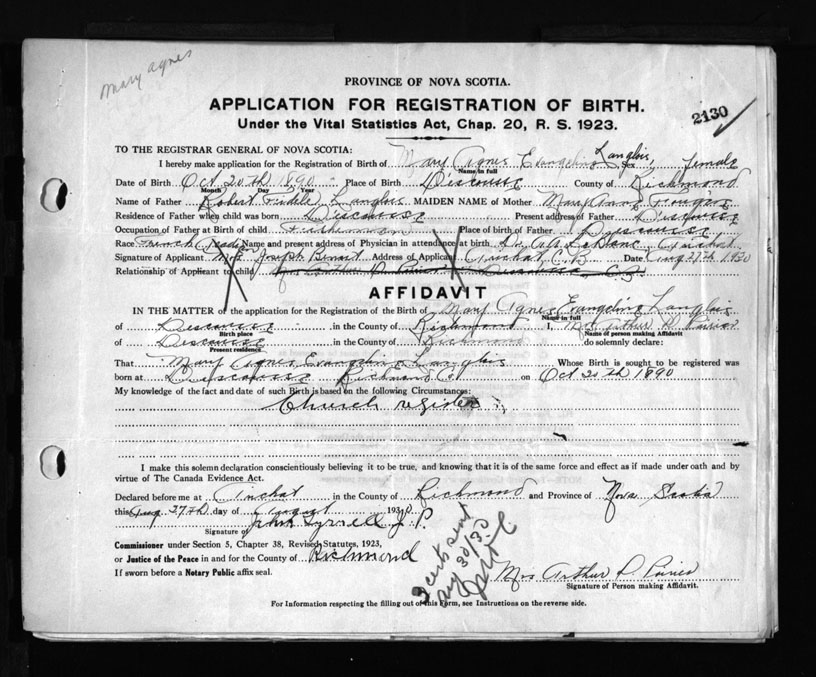 Mary Agnes
PROVINCE OF NOVA SCOTIA.
APPLICATION FOR REGISTRATION OF BIRTH.
2130
Under the Vital Statistics Act, Chap. 20, R. S. 1923.
TO THE REGISTRAR GENERAL OF NOVA SCOTIA:
I hereby make application for the Registration of Birth of Mary Agnes Evangeline Langlois, Sex female
Name in full
Date of Birth Oct 20th 1890 Place of Birth Descousse County of Richmond
Month Day Year
Name of Father Robert Fidele Langlois MAIDEN NAME of Mother Mary Ann
Residence of Father when child was born Descousse Present address of Father Descousse
Occupation of Father at Birth of child Fisherman Place of birth of Father Descousse
Race French Name and present address of Physician in attendance at birth Dr LeBlanc Arichat
Signature of Applicant Mrs Joseph Benoit Address of Applicant Arichat C.B. Date Aug 27th 1930
Relationship of Applicant to child Descousse C.B.
AFFIDAVIT
IN THE MATTER of the application for the Registration of the Birth of Mary Agnes Evangeline Langlois
Name in full
of Descousse in the County of Richmond I, Mrs Arthur D. Poirier
Birth place Name of person making Affidavit
of Descousse in the County of Richmond do solemnly declare:
Present residence
That Mary Agnes Evangeline Langlois Whose Birth is sought to be registered was
born at Descousse Richmond Co on Oct 20th 1890
My knowledge of the fact and date of such Birth is based on the following Circumstances:
Church register
I make this solemn declaration conscientiously believing it to be true, and knowing that it is of the same force and effect as if made under oath and by
virtue of The Canada Evidence Act.
Declared before me at Arichat in the County of Richmond and Province of Nova Scotia
this Aug 27th day of August 1930
Signature of John Tyrrell J.P.
Commissioner under Section 5, Chapter 38, Revised Statutes, 1923,
or Justice of the Peace in and for the County of Richmond
If sworn before a Notary Public affix seal.
sent Aug 30/30
Mrs Arthur D. Poirier
Signature of Person making Affidavit.
For Information respecting the filling out of this Form, see Instructions on the reverse side.